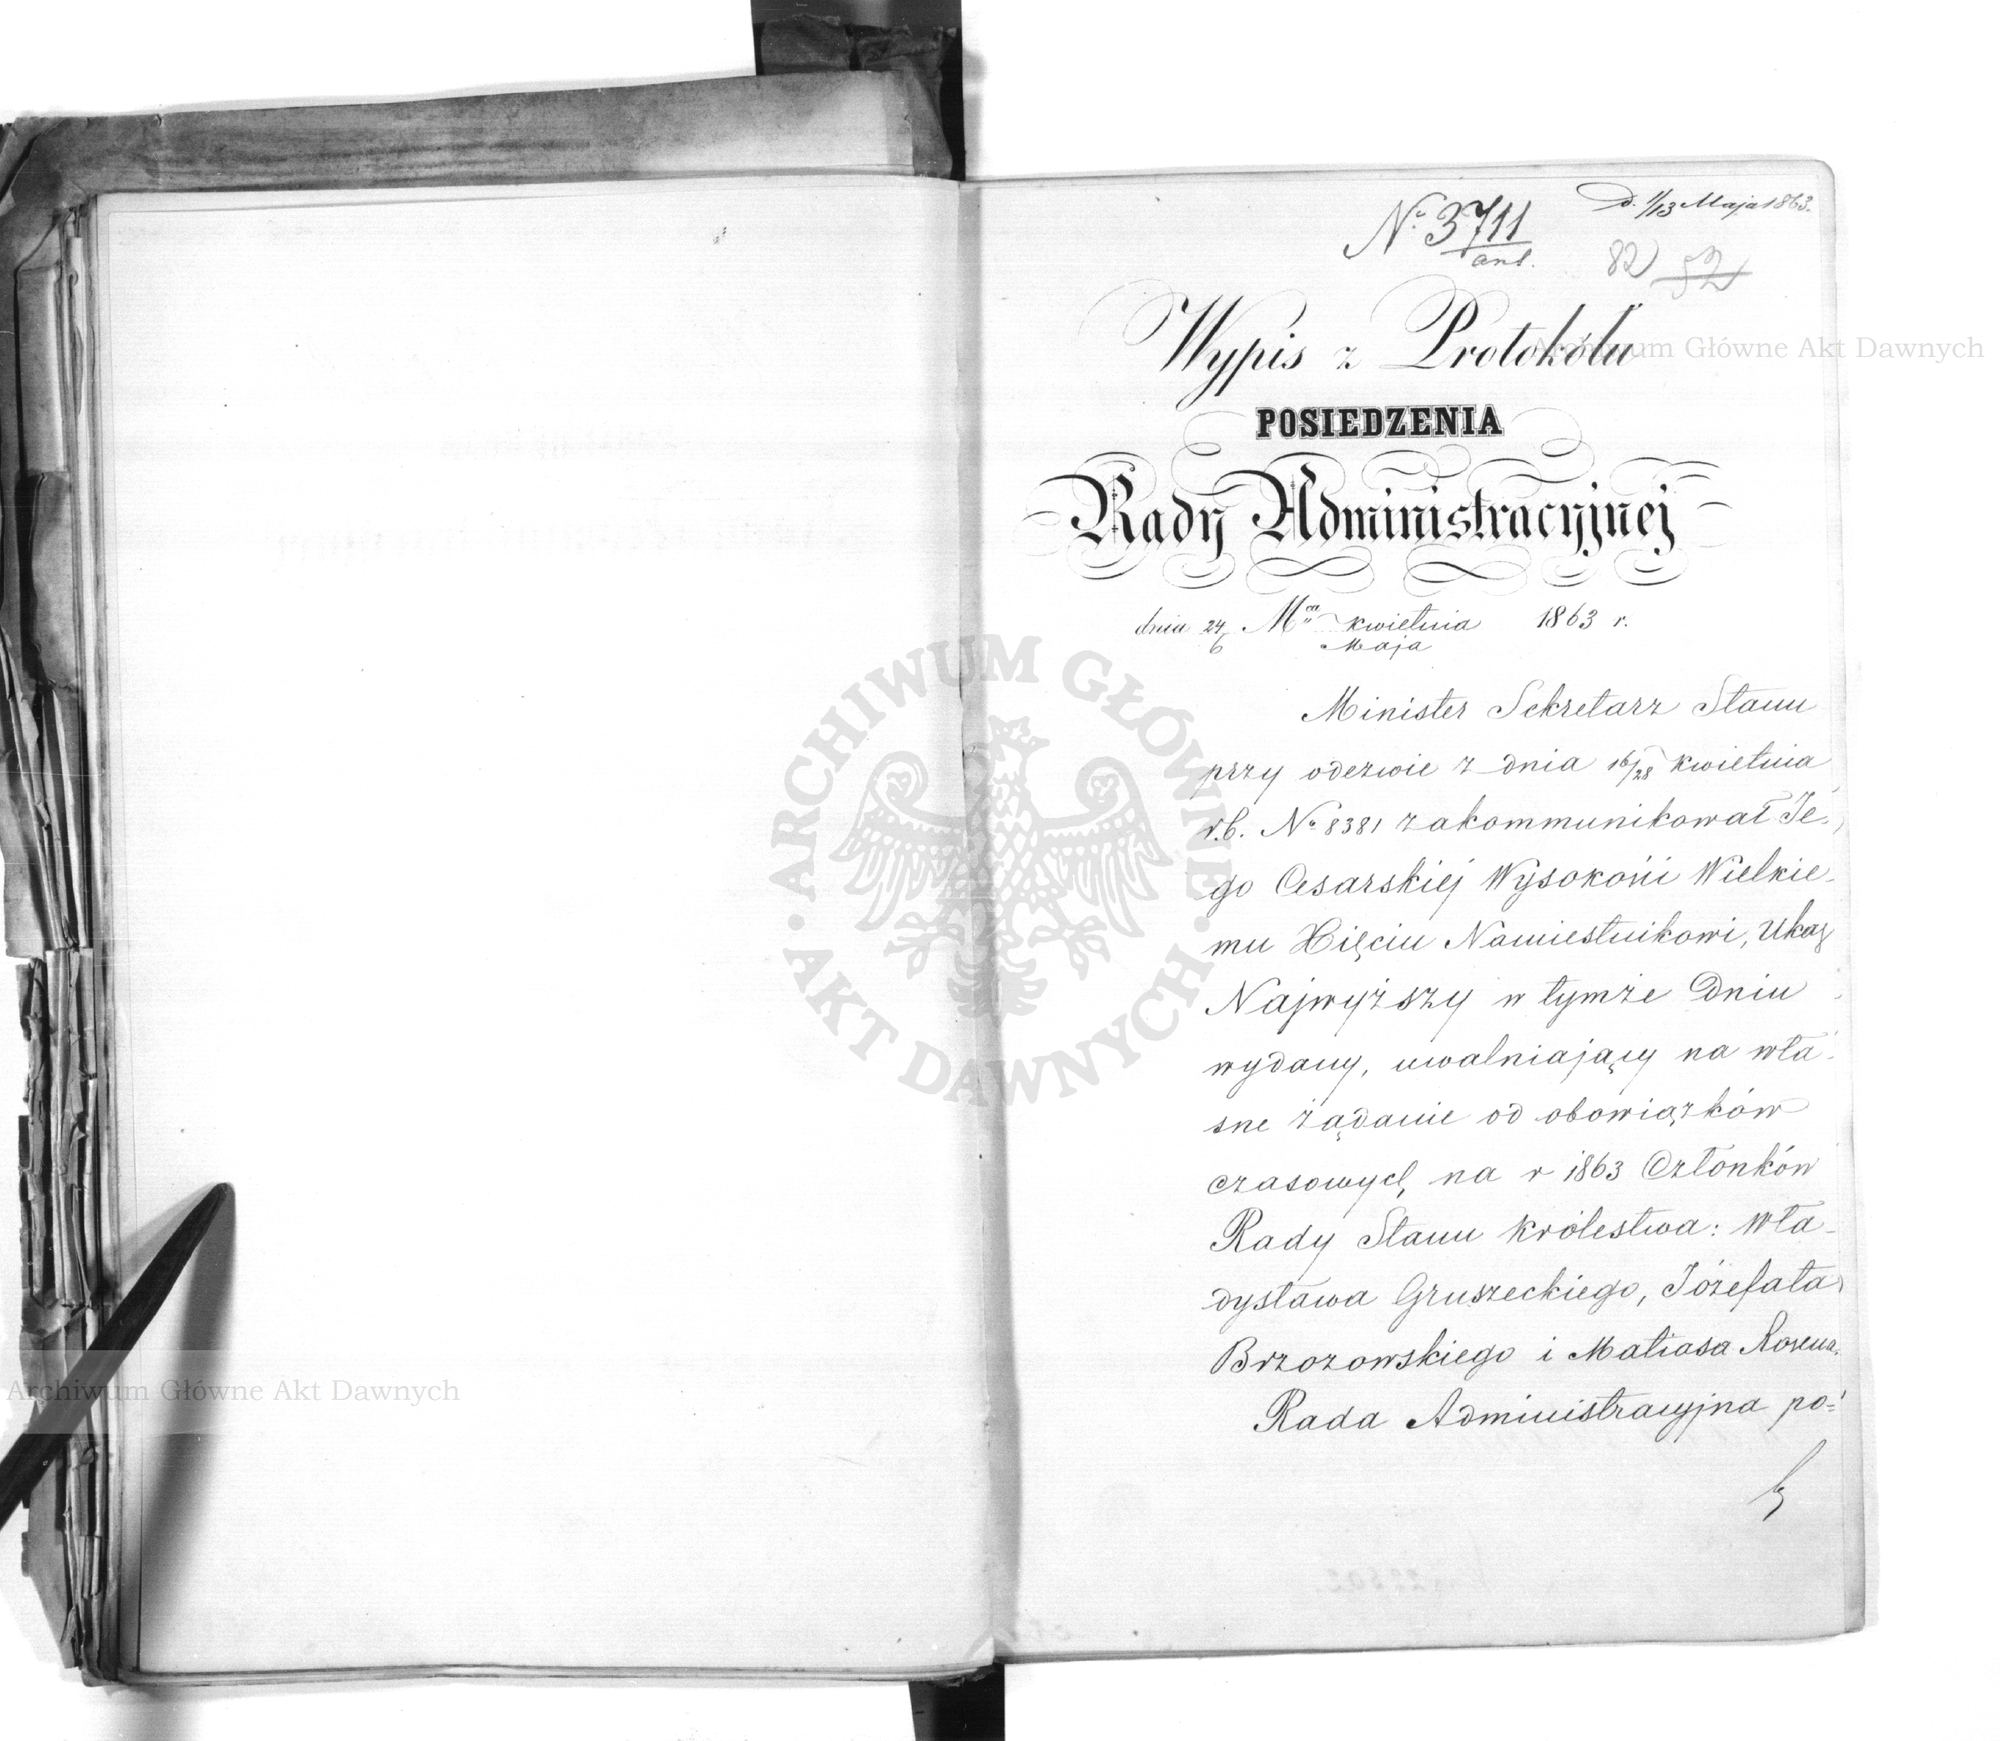 D. 1/13 Maja 1863.
No 3711
ant.
82 52
Wypis z Protokółu
POSIEDZENIA
Rady Administracyjnej
dnia 24/6 Mca kwietnia 1863 r.
Maja
Minister Sekretarz Stanu
przy odezwie z dnia 16/28 kwietnia
r.b. No 8381 zakommunikował Je-
go Cesarskiej Wysokości Wielkie-
mu Xięciu Namiestnikowi, Ukaz
Najwyższy w tymże Dniu
wydany, uwalniający na wła-
sne żądanie od obowiązków
czasowych na r 1863 Członków
Rady Stanu Królestwa: Wła-
dysława Gruszeckiego, Józefata
Brzozowskiego i Matiasa Rosena.
Rada Administracyjna po-
Archiwum Główne Akt Dawnych
ARCHIWUM GŁÓWNE · AKT DAWNYCH ·
Archiwum Główne Akt Dawnych